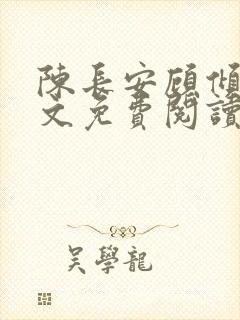 陳長安顧傾
文免費閱讀
吴學龍